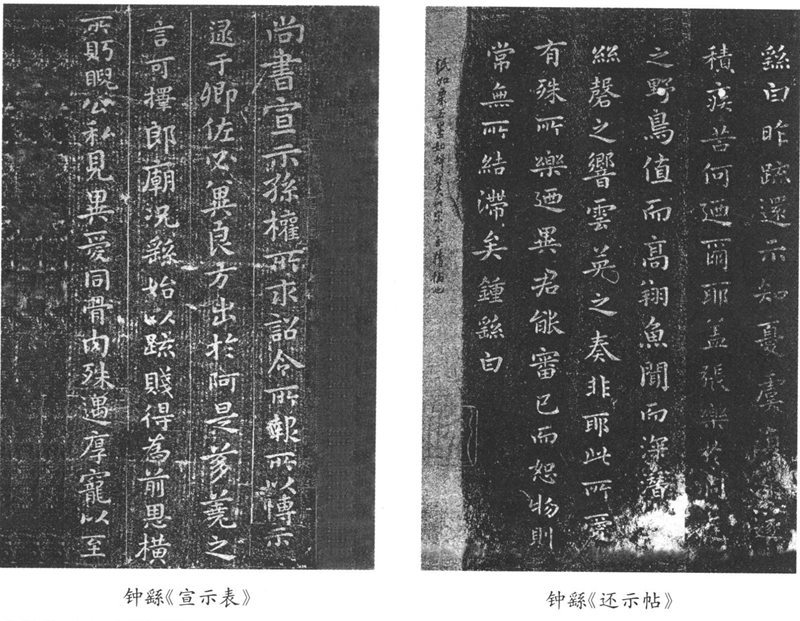 尚書宣示孫權所求詔令所報所以博示
逮于卿佐必冀良方出於阿是芻蕘之
言可擇郎廟況繇始以疏賤得為前恩橫
所貺睨公私見異愛同骨肉殊遇厚寵以至
繇白昨疏還示知憂虞
積疾苦何迺爾耶蓋張樂於洞庭
之野鳥值而高翔魚聞而深潛
絲磬之響雲英之奏非耶此所愛
有殊所樂迺異君能審己而恕物則
常無所結滯矣鍾繇白
钟繇《宣示表》
钟繇《还示帖》